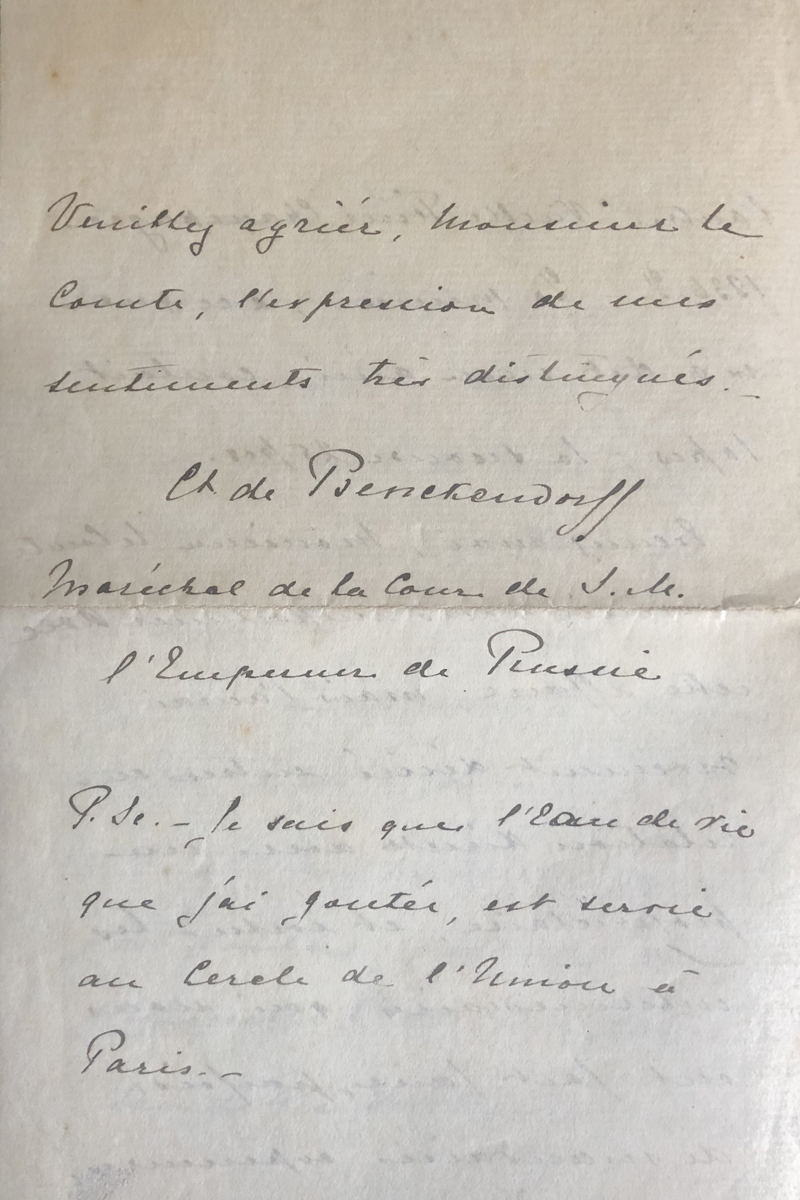 Veuillez agréer, Monsieur le
Comte, l'expression de mes
sentiments très distingués.
Ct. de Benckendorff
Maréchal de la Cour de S. M.
l'Empereur de Russie
P. Sc. – Je sais que l'Eau de vie
que j'ai goutée, est servie
au Cercle de l'Union à
Paris. –